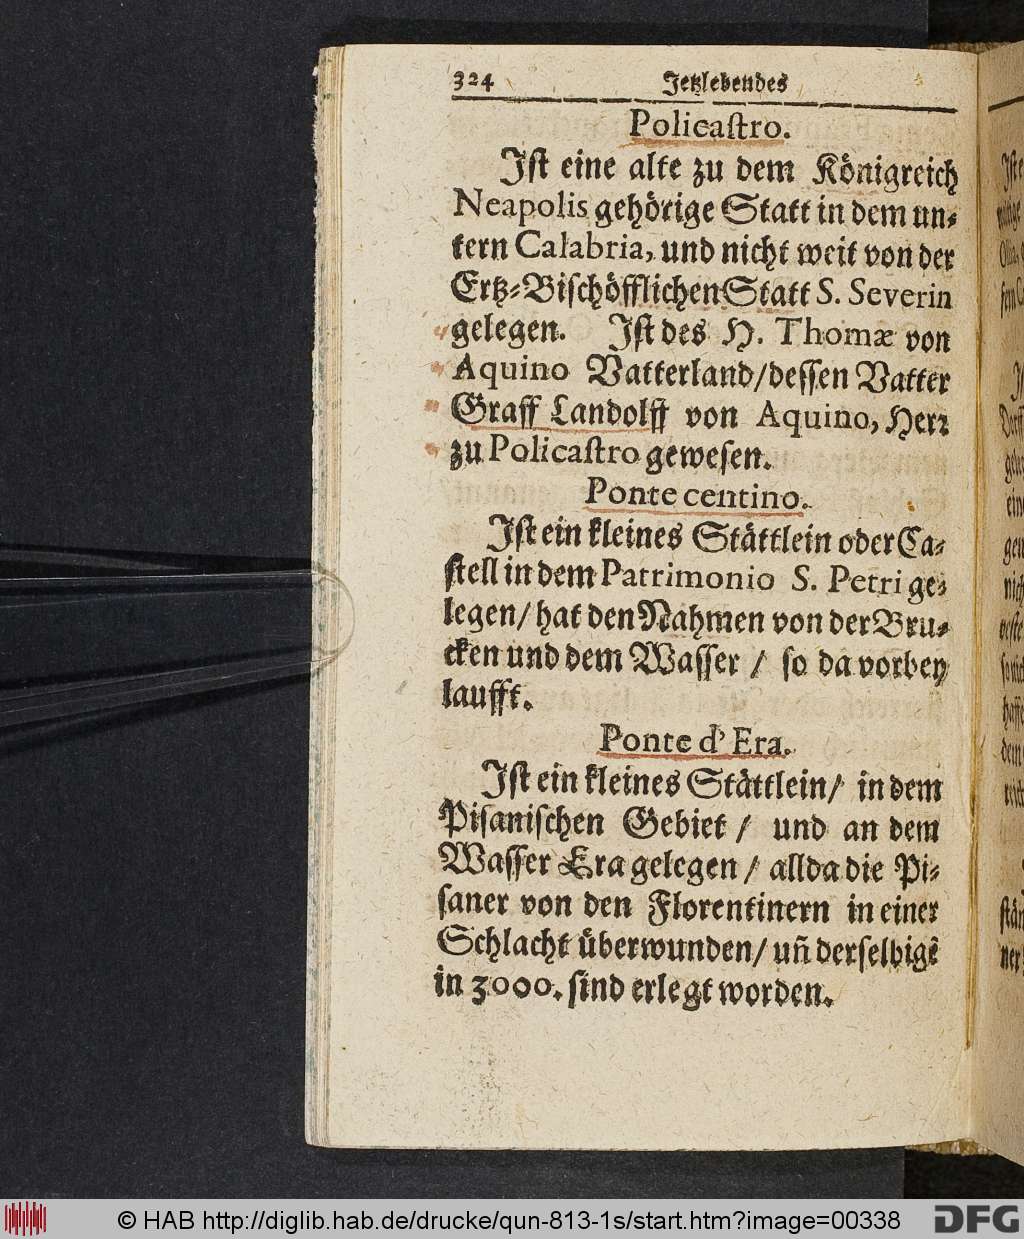 324 Jetzlebendes
Policaſtro.
Iſt eine alte zu dem Königreich
Neapolis gehörige Statt in dem un⸗
tern Calabria, und nicht weit von der
Ertz⸗Biſchöfflichen Statt S. Severin
gelegen. Iſt des H. Thomæ von
Aquino Vatterland/deſſen Vatter
Graff Landolff von Aquino, Herꝛ
zu Policaſtro geweſen.
Ponte centino.
Iſt ein kleines Stättlein oder Ca⸗
ſtell in dem Patrimonio S. Petri ge⸗
legen/ hat den Nahmen von der Bru⸗
cken und dem Waſſer / ſo da vorbey
laufft.
Ponte d' Era.
Iſt ein kleines Stättlein/ in dem
Piſaniſchen Gebiet / und an dem
Waſſer Era gelegen / allda die Pi⸗
ſaner von den Florentinern in einer
Schlacht überwunden/ uñ derſelbigẽ
in 3000. ſind erlegt worden.
© HAB http://diglib.hab.de/drucke/qun-813-1s/start.htm?image=00338
DFG